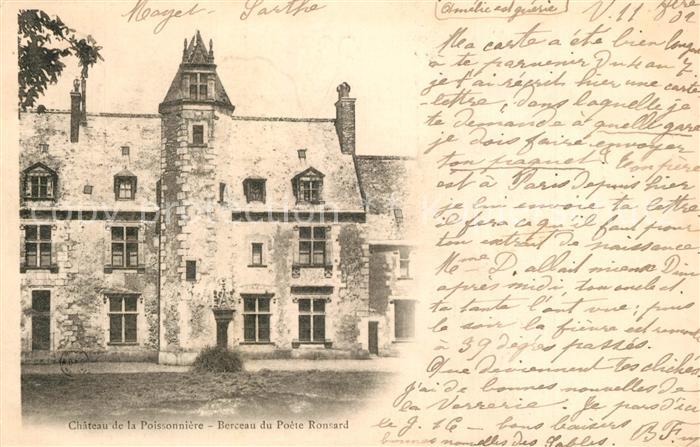 Mayet - Sarthe
(Amélie est guérie)
V. 11
Ma carte a été bien long
à te parvenir
je t'ai récrit hier une carte
-lettre, dans laquelle je
te demande à quelle gare
je dois faire envoyer
ton paquet. Ton père
est à Paris depuis hier
je lui envoie ta lettre
il fera ce qu'il faut pour
ton extrait de naissance.
Mme D. allait mieux Dim
après midi, ton oncle et
ta tante l'ont vue; puis
le soir la fièvre est revenue
à 39 degrés passés.
Que deviennent tes clichés
J'ai de bonnes nouvelles de
la Verrerie. Je pars d'ici
le J. 16 - bons baisers
bonnes nouvelles des Sables. B F.
Château de la Poissonnière - Berceau du Poète Ronsard